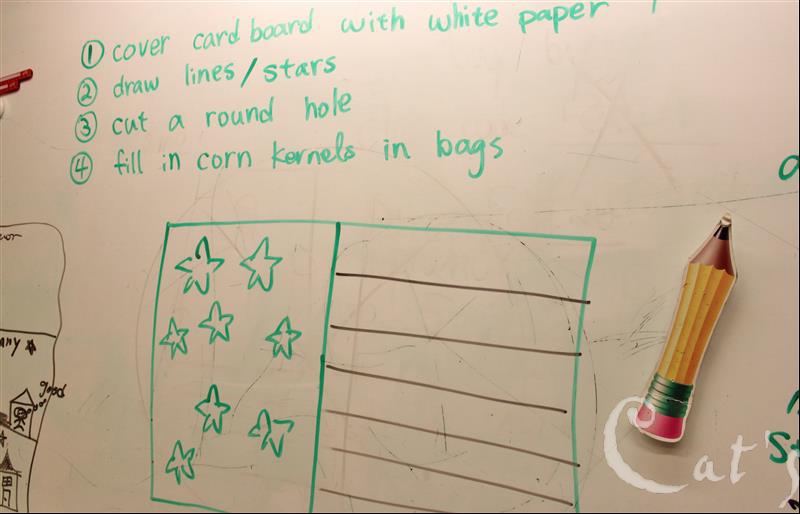 ① cover cardboard with white paper
② draw lines/stars
③ cut a round hole
④ fill in corn kernels in bags
good
Cat's